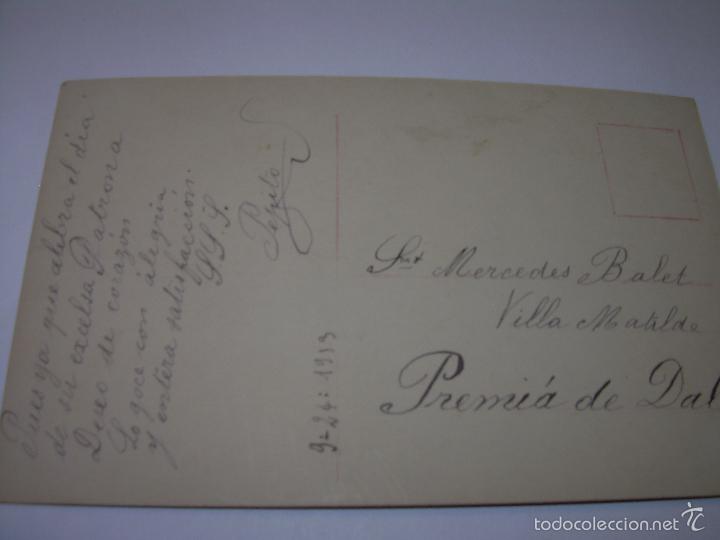 Pues ya que celebra el dia
de su excelsa Patrona
Deseo de corazón
Lo goce con alegria
y entera satisfacción.
S.S.S.
Pepito
9=24=1913
Srta Mercedes Balet
Villa Matilde
Premiá de Dal
todocoleccion.net